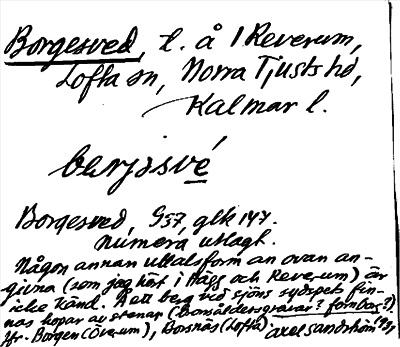 Borgesved, t. å 1 Reverum,
Lofta sn, Norra Tjusts hd,
Kalmar l.
berjəsvé
Borgesved, G37, glk 147.
Numera utlagt.
Någon annan uttalsform än ovan an-
givna (som jag hört i Hägg och Reverum) är
icke känd. På ett berg vid sjöns sydspets fin-
nas hopar av stenar (bronsåldersgravar? fornborg?).
Jfr. Borgen (Överum), Borsnäs (Lofta). Axel Sandström